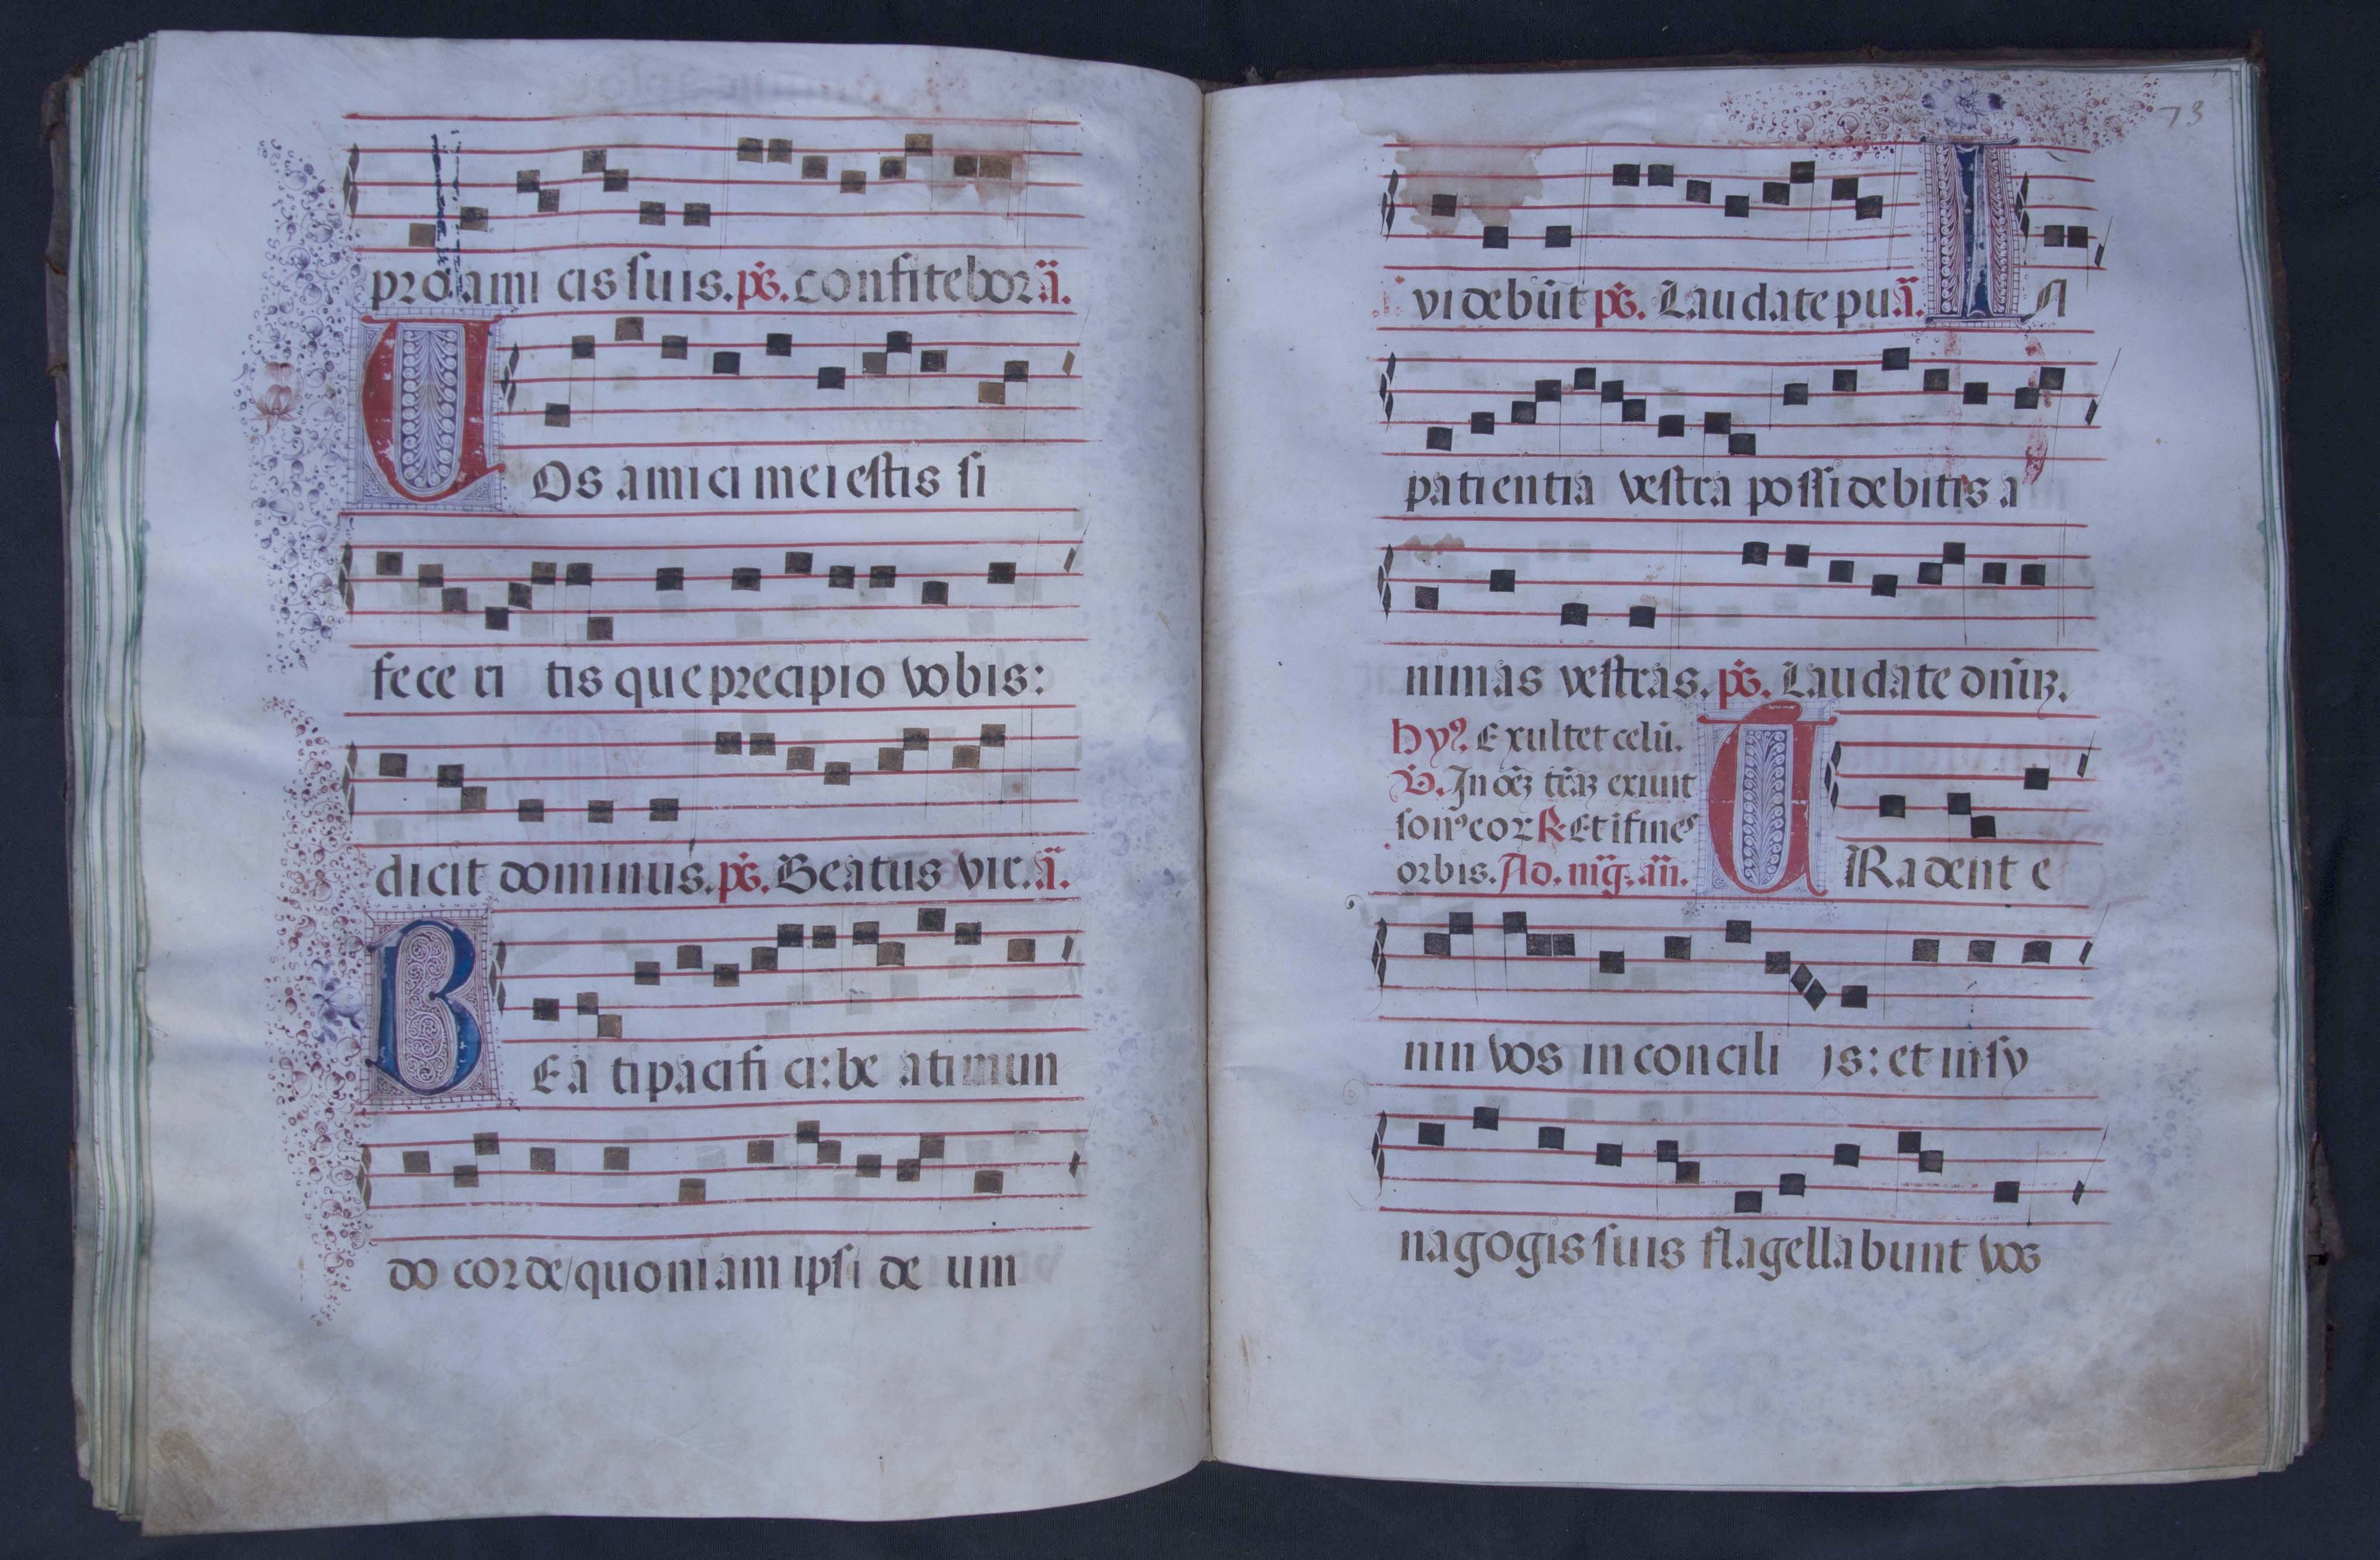 pro ami cis suis. ps. confitebor a.
U Os amici mei estis si
fece ri tis que precipio vobis:
dicit dominus. ps. Beatus vir. a.
B Ea ti pacifi ci: be ati mun
do corde/ quoniam ipsi de um
73
videbūt ps. Laudate pu a. I N
patientia vestra possidebitis a
nimas vestras. ps. Laudate dn̄ūꝫ.
hyꝰ. Exultet celū.
V. In oēꝫ trāꝫ exiuit
sonꝰ eoꝝ R. Et ī fines
orbis. Ad. mg̃. an̄.
T Radent e
nin vos in concili js: et in sy
nagogis suis flagellabunt vos